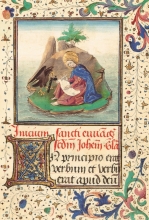 Inicium sancti euuāg
scdm Johem Gla
In principio erat
verbum et verbū
erat apud deū